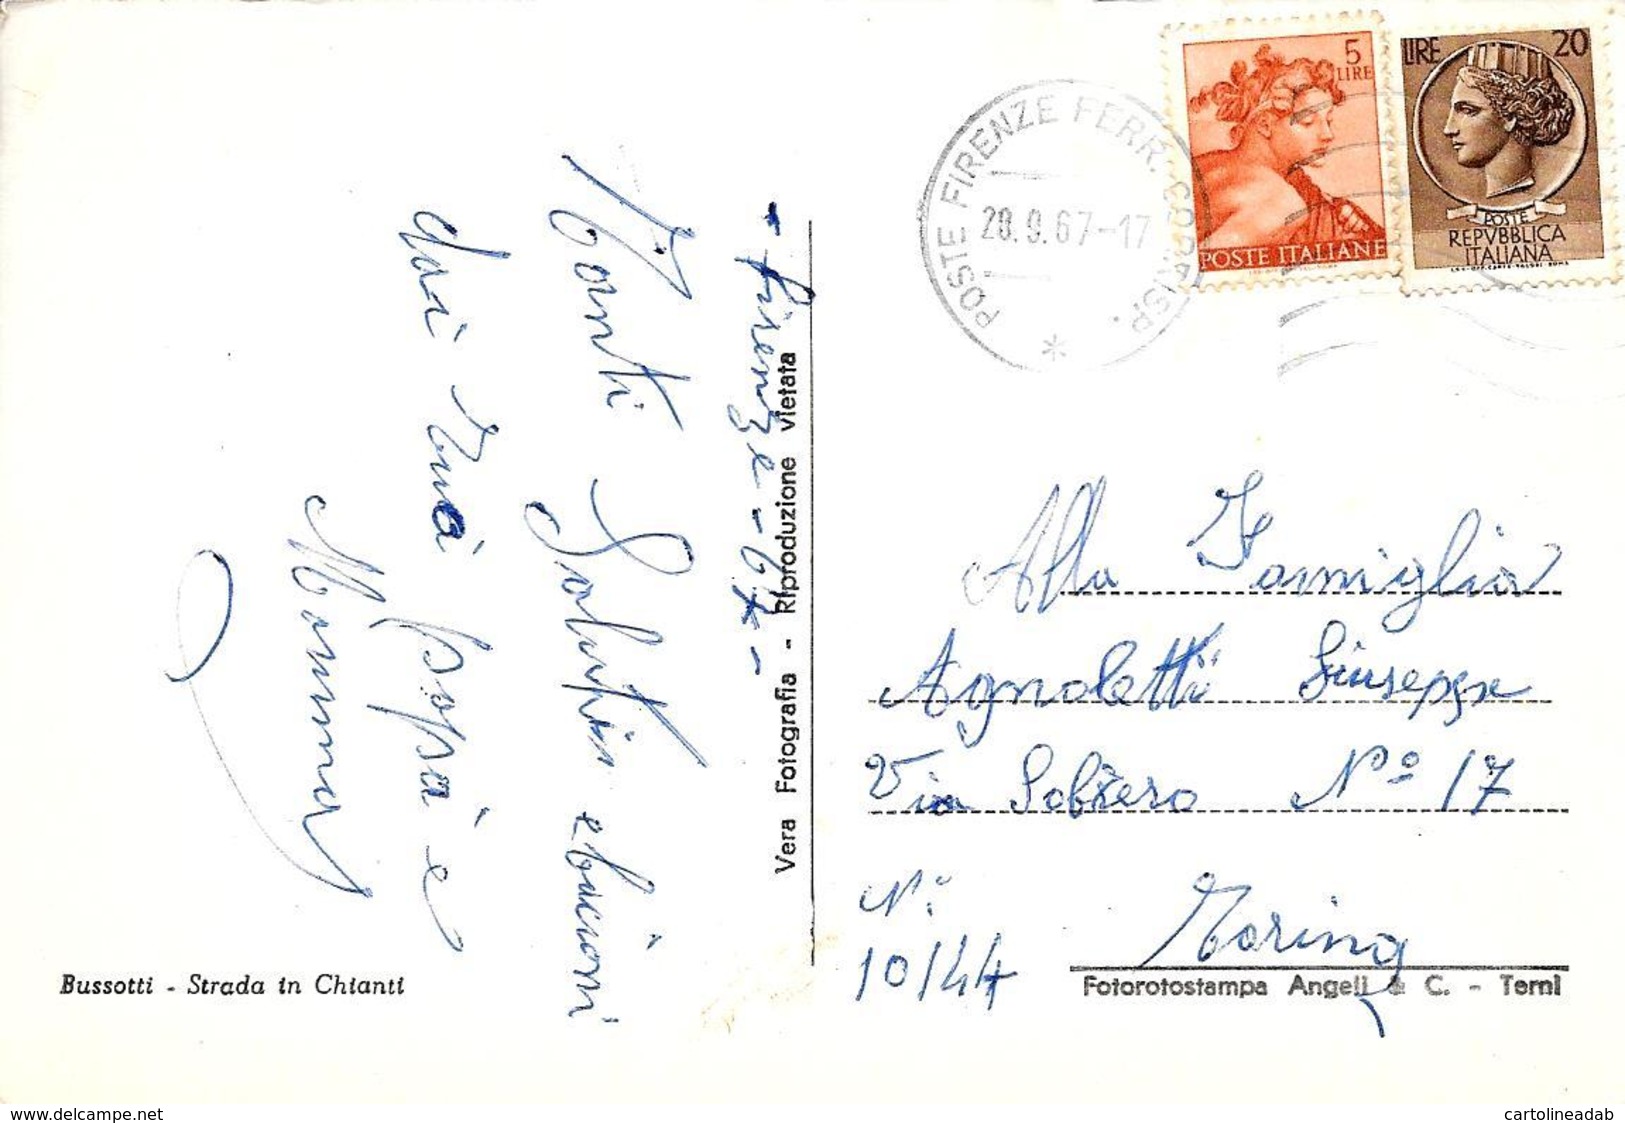 5
LIRE
POSTE ITALIANE
LIRE 20
POSTE
REPVBBLICA
ITALIANA
POSTE FIRENZE FERR. CORRISP.
28.9.67-17
- firenze - 67 -
Tanti Saluti e bacioni
dai tuoi papà e
Mamma
Vera Fotografia - Riproduzione vietata
Alla Famiglia
Agnoletti Giuseppe
Via Sobrero Nº 17
N.
10/44
Torino
Bussotti - Strada in Chianti
Fotorotostampa Angeli & C. - Terni
www.delcampe.net
cartolineadab